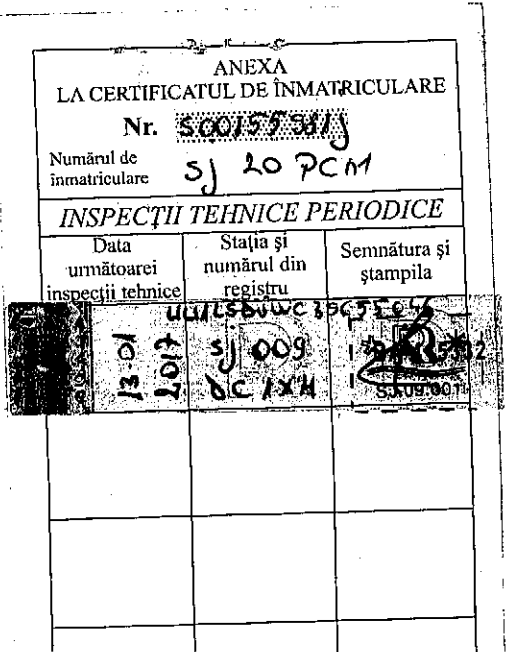 ANEXA
LA CERTIFICATUL DE ÎNMATRICULARE
Nr. S00155981J
Numărul de înmatriculare SJ 20 PCM
INSPECŢII TEHNICE PERIODICE
Data următoarei inspecţii tehnice
Staţia şi numărul din registru
Semnătura şi ştampila
13.01
2017
SJ 009